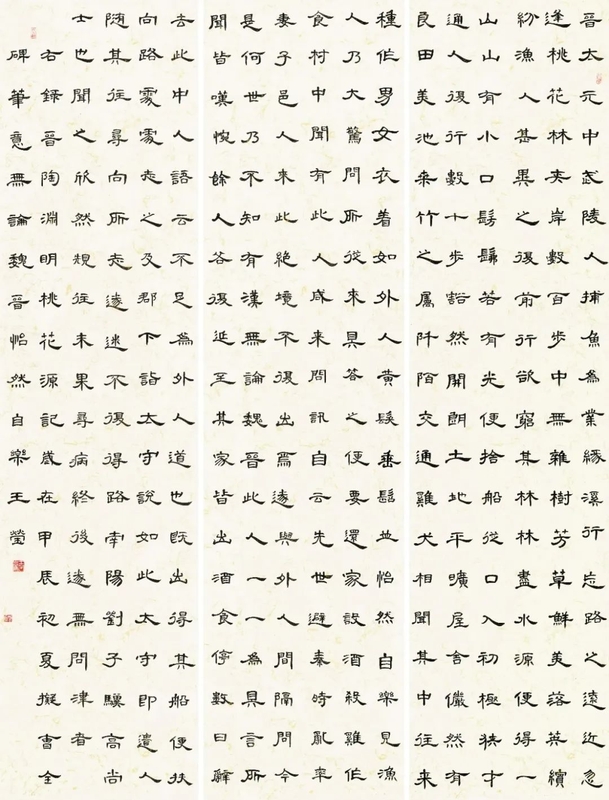 晉太元中武陵人捕魚為業緣溪行忘路之遠近忽
逢桃花林夾岸數百步中無雜樹芳草鮮美落英繽
紛漁人甚異之復前行欲窮其林林盡水源便得一
山山有小口髣髴若有光便捨船從口入初極狹才
通人復行數十步豁然開朗土地平曠屋舍儼然有
良田美池桑竹之屬阡陌交通雞犬相聞其中往來
種作男女衣着如外人黃髮垂髫並怡然自樂見漁
人乃大驚問所從來具答之便要還家設酒殺雞作
食村中聞有此人咸來問訊自云先世避秦時亂率
妻子邑人來此絕境不復出焉遂與外人間隔問今
是何世乃不知有漢無論魏晉此人一一為具言所
聞皆嘆惋餘人各復延至其家皆出酒食停數日辭
去此中人語云不足為外人道也既出得其船便扶
向路處處志之及郡下詣太守說如此太守即遣人
隨其往尋向所志遂迷不復得路南陽劉子驥高尚
士也聞之欣然規往未果尋病終後遂無問津者
右錄晉陶淵明桃花源記歲在甲辰初夏擬曹全
碑筆意無論魏晉怡然自樂王瑩